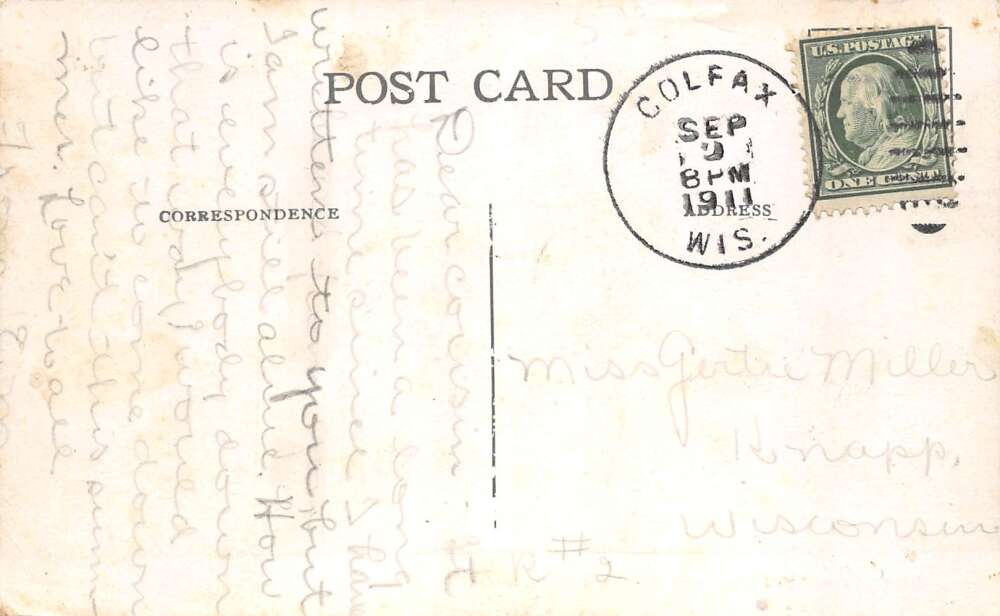 POST CARD
CORRESPONDENCE
ADDRESS
COLFAX
SEP
9
8 PM
1911
WIS.
U.S. POSTAGE
ONE CENT
Dear cousin It
has been a long
time since I have
written to you but
I am still alive. How
is everybody down
that way I would
like to come down
but can't this sum
mer. Love to all
Miss Gertie Miller
Knapp,
Wisconsin
R #2